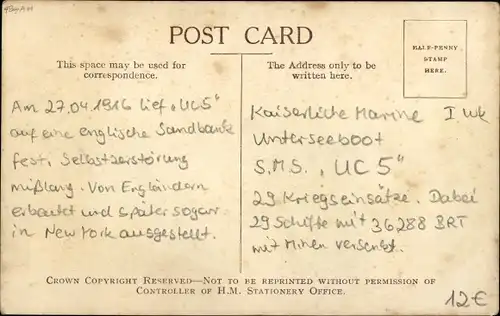 POST CARD
This space may be used for
correspondence.
The Address only to be
written here.
HALF-PENNY
STAMP
HERE.
Am 27.04.1916 lief „UC5"
auf eine englische Sandbank
fest. Selbstzerstörung
mißlang. Von Engländern
erbeutet und später sogar
in New York ausgestellt.
Kaiserliche Marine I WK
Unterseeboot
S.M.S. „UC 5"
29 Kriegseinsätze. Dabei
29 Schiffe mit 36288 BRT
mit Minen versenkt.
CROWN COPYRIGHT RESERVED—NOT TO BE REPRINTED WITHOUT PERMISSION OF
CONTROLLER OF H.M. STATIONERY OFFICE.
12€